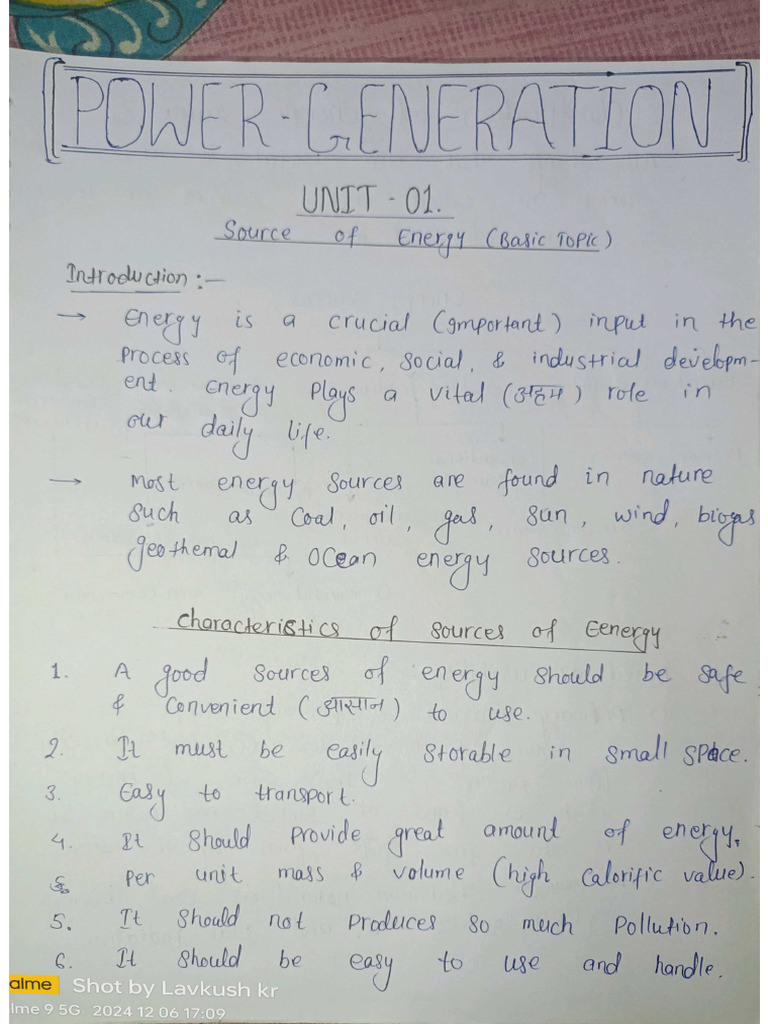 POWER-GENERATION
UNIT - 01.
Source of Energy (Basic Topic)
Introduction :-
→ Energy is a crucial (Important) input in the
process of economic, social, & industrial developm-
ent. Energy plays a vital (अहम) role in
our daily life.
→ Most energy sources are found in nature
such as coal, oil, gas, sun, wind, biogas
geothemal & ocean energy sources.
Characteristics of sources of Eenergy
1. A good sources of energy should be safe
& convenient (आसान) to use.
2. It must be easily storable in small space.
3. Easy to transport.
4. It should provide great amount of energy,
per unit mass & volume (high calorific value).
5. It should not produces so much pollution.
6. It should be easy to use and handle.
alme Shot by Lavkush kr
lme 9 5G 2024 12 06 17:09